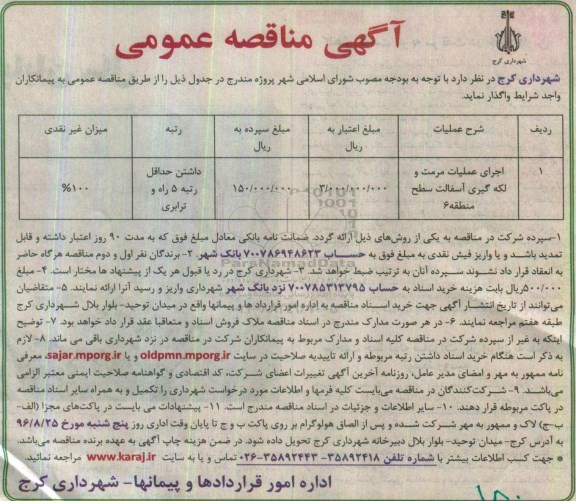 آگهی مناقصه عمومی
شهرداری کرج
شهرداری کرج در نظر دارد با توجه به بودجه مصوب شورای اسلامی شهر پروژه مندرج در جدول ذیل را از طریق مناقصه عمومی به پیمانکاران
واجد شرایط واگذار نماید.
ردیف شرح عملیات مبلغ اعتبار به ریال مبلغ سپرده به ریال رتبه میزان غیر نقدی
۱ اجرای عملیات مرمت و لکه گیری آسفالت سطح منطقه۶ ۳/۰۰۰/۰۰۰/۰۰۰ ۱۵۰/۰۰۰/۰۰۰ داشتن حداقل رتبه ۵ راه و ترابری ۱۰۰%
۱-سپرده شرکت در مناقصه به یکی از روش‌های ذیل ارائه گردد. ضمانت نامه بانکی معادل مبلغ فوق که به مدت ۹۰ روز اعتبار داشته و قابل
تمدید باشد و یا واریز فیش نقدی به مبلغ فوق به حساب ۷۰۰۷۸۶۹۴۸۶۲۳ بانک شهر. ۲- برندگان نفر اول و دوم مناقصه هرگاه حاضر
به انعقاد قرار داد نشوند سپرده آنان به ترتیب ضبط خواهد شد. ۳- شهرداری کرج در رد یا قبول هر یک از پیشنهاد ها مختار است. ۴- مبلغ
۵۰۰/۰۰۰ریال بابت هزینه خرید اسناد به حساب ۷۰۰۷۸۵۳۱۳۷۹۵ نزد بانک شهر شهرداری واریز و رسید آنرا ارائه نمایند. ۵- متقاضیان
می‌توانند از تاریخ انتشار آگهی جهت خرید اسناد مناقصه به اداره امور قرارداد ها و پیمانها واقع در میدان توحید- بلوار بلال شهرداری کرج
طبقه هفتم مراجعه نمایند. ۶- در هر صورت مدارک مندرج در اسناد مناقصه ملاک فروش اسناد و متعاقبا عقد قرار داد خواهد بود. ۷- توضیح
اینکه به غیر از سپرده شرکت در مناقصه کلیه اسناد و مدارک مربوط به پیمانکاران شرکت در مناقصه در نزد شهرداری باقی می ماند. ۸- لازم
به ذکر است هنگام خرید اسناد داشتن رتبه مربوطه و ارائه تاییدیه صلاحیت در سایت oldpmn.mporg.ir و یا sajar.mporg.ir، معرفی
نامه ممهور به مهر و امضای مدیر عامل، روزنامه آخرین آگهی تغییرات اعضای شرکت، کد اقتصادی و گواهنامه صلاحیت ایمنی معتبر الزامی
می‌باشد. ۹- شرکت‌کنندگان در مناقصه می‌بایست کلیه فرمها و اطلاعات مورد درخواست شهرداری را تکمیل و به همراه سایر اسناد مناقصه
در پاکت مربوطه قرار دهند. ۱۰- سایر اطلاعات و جزئیات در اسناد مناقصه مندرج است. ۱۱- پیشنهادات می بایست در پاکت‌های مجزا (الف-
ب-ج) لاک و ممهور به مهر شرکت شده و پس از الصاق هولوگرام بر روی پاکت ب و ج تا پایان وقت اداری روز پنج شنبه مورخ ۹۶/۸/۲۵
به آدرس کرج- میدان توحید- بلوار بلال دبیرخانه شهرداری کرج تحویل داده شود. در ضمن هزینه چاپ آگهی به عهده برنده مناقصه می‌باشد.
• جهت کسب اطلاعات بیشتر با شماره تلفن ۳۵۸۹۲۴۱۸- ۳۵۸۹۲۴۴۳-۰۲۶ تماس و یا به سایت www.karaj.ir مراجعه نمائید.
اداره امور قراردادها و پیمانها- شهرداری کرج
ParsNamadData